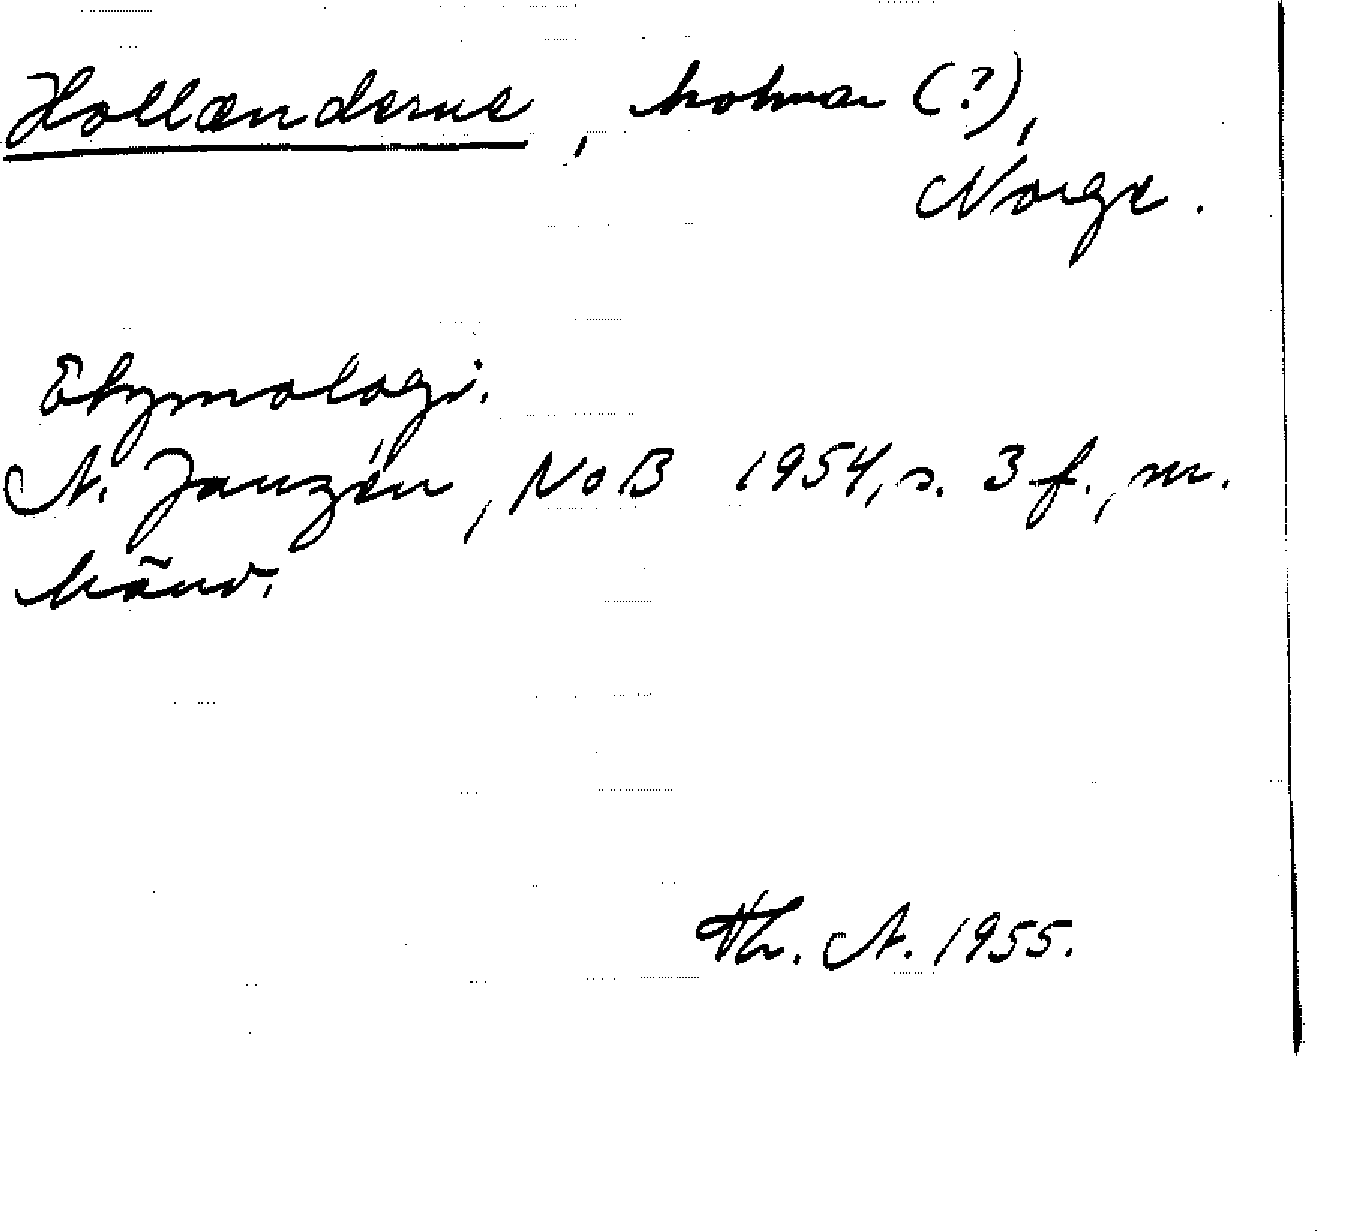 Hollænderne, holmar (?),
Norge.
Etymologi.
A. Janzén, NoB 1954, s. 3 f., m.
hänv.
Th. A. 1955.